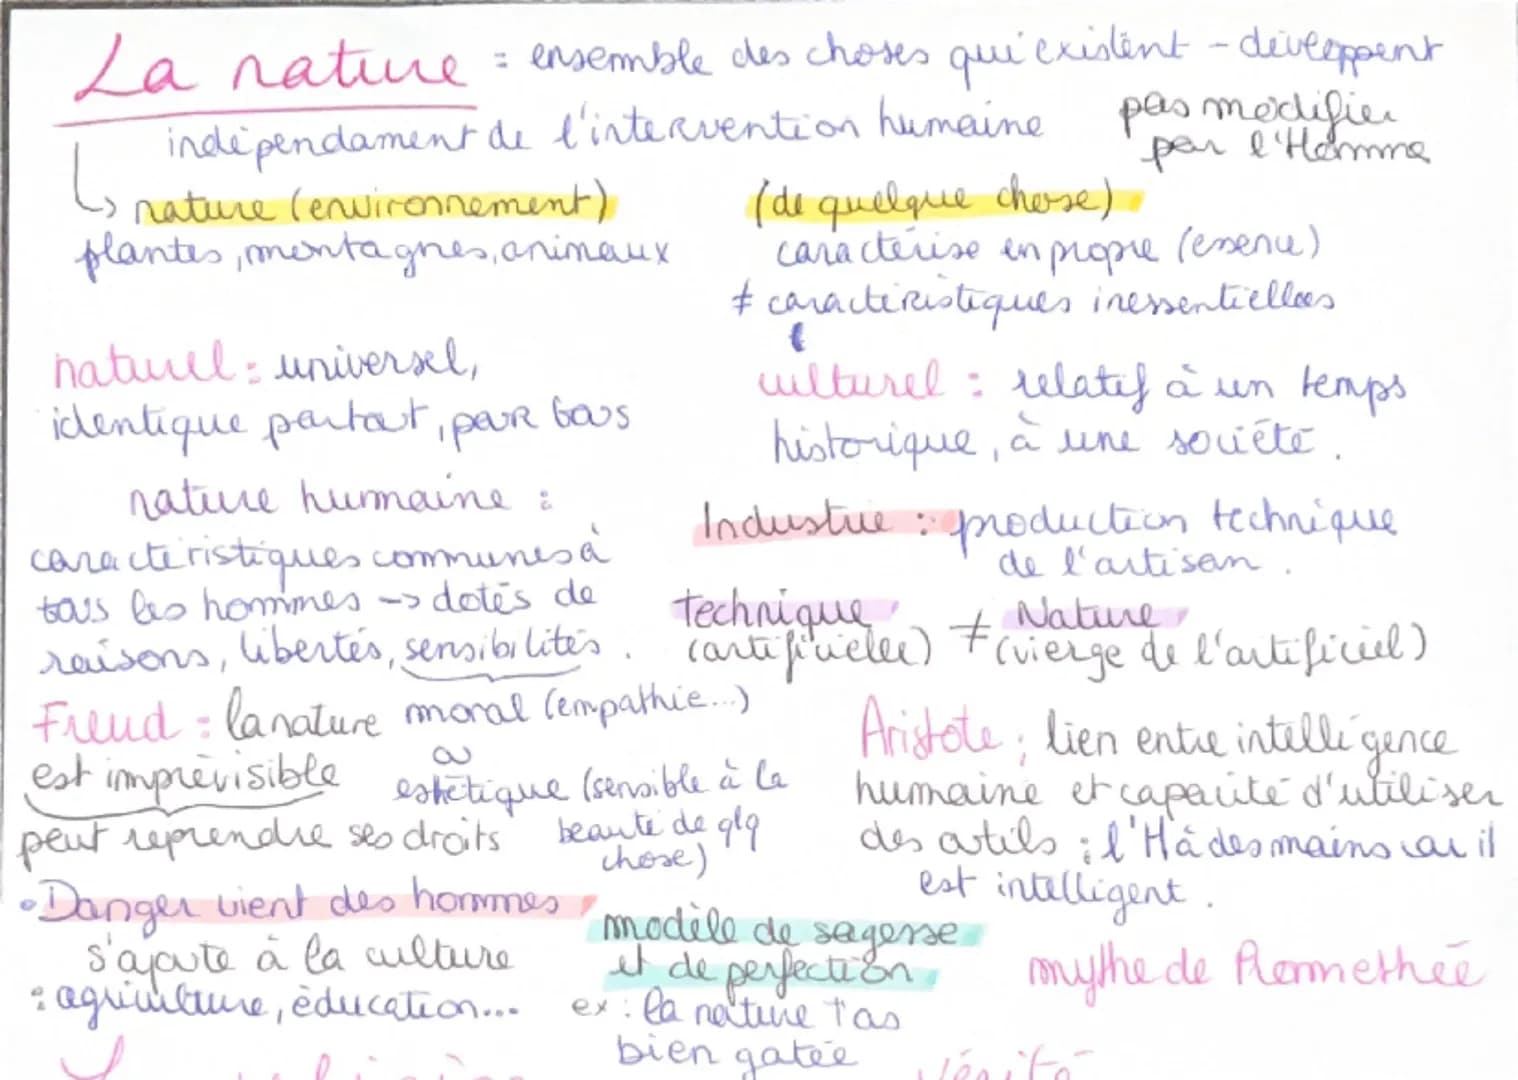 La nature = ensemble des choses qui existent - développent
indépendament de l'intervention humaine
pas modifier
par l'Homme
↳ nature (environnement)
plantes, montagnes, animaux
(de quelque chose)
caractérise en propre (essence)
≠ caractéristiques inessentielles
naturel : universel,
identique partout, par tous
culturel : relatif à un temps
historique, à une société.
nature humaine :
caractéristiques communes à
tous les hommes -> dotés de
raisons, libertés, sensibilités.
moral (empathie...)
ou
esthétique (sensible à la
beauté de qlq
chose)
Industrie : production technique
de l'artisan.
technique ≠ Nature
(artificielle) (vierge de l'artificiel)
Freud : la nature
est imprévisible
peut reprendre ses droits
Aristote : lien entre intelligence
humaine et capacité d'utiliser
des outils : l'H à des mains car il
est intelligent.
• Danger vient des hommes
s'ajoute à la culture
: agriculture, éducation...
modèle de sagesse
et de perfection
ex : la nature t'as
bien gatée
mythe de Promethée
vérité